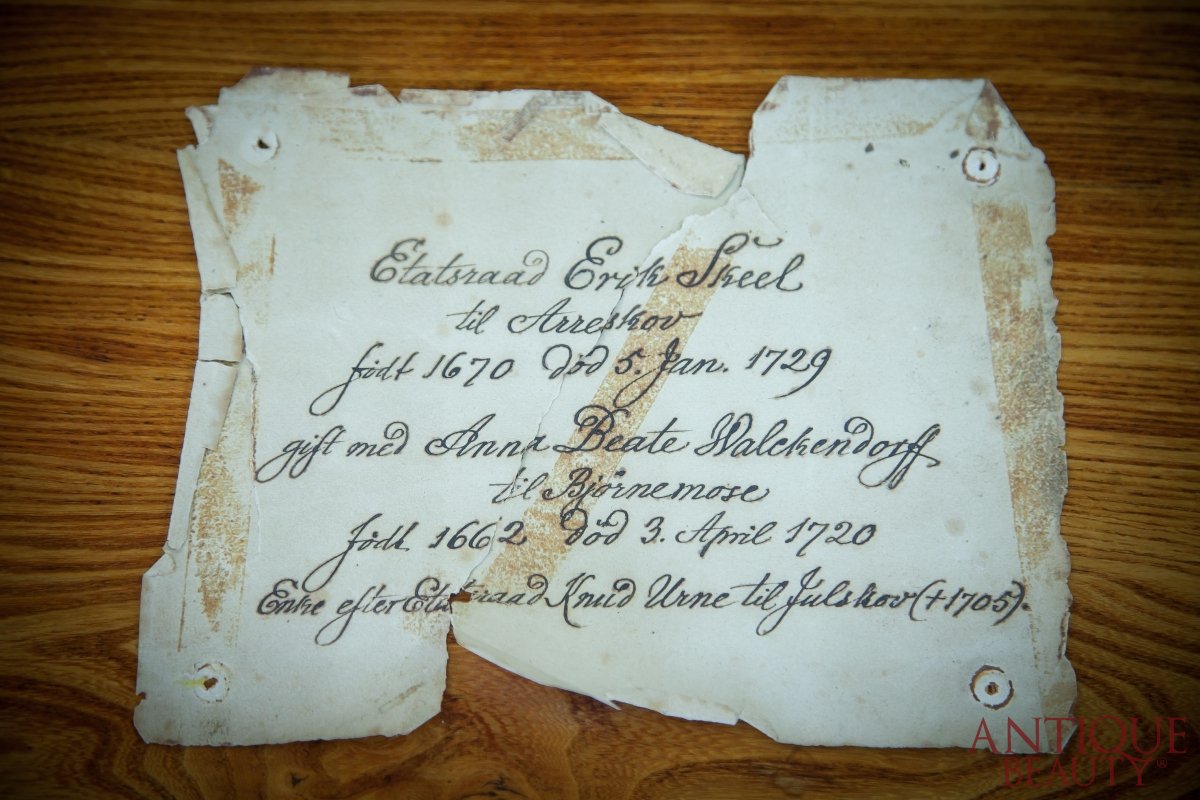 Etatsraad Erik Skeel
til Arreskov
født 1670 død 5. Jan. 1729
gift med Anna Beate Walckendorff
til Bjørnemose
født 1662 død 3. April 1720
Enke efter Etatsraad Knud Urne til Julskov (+1705).
ANTIQUE
BEAUTY®